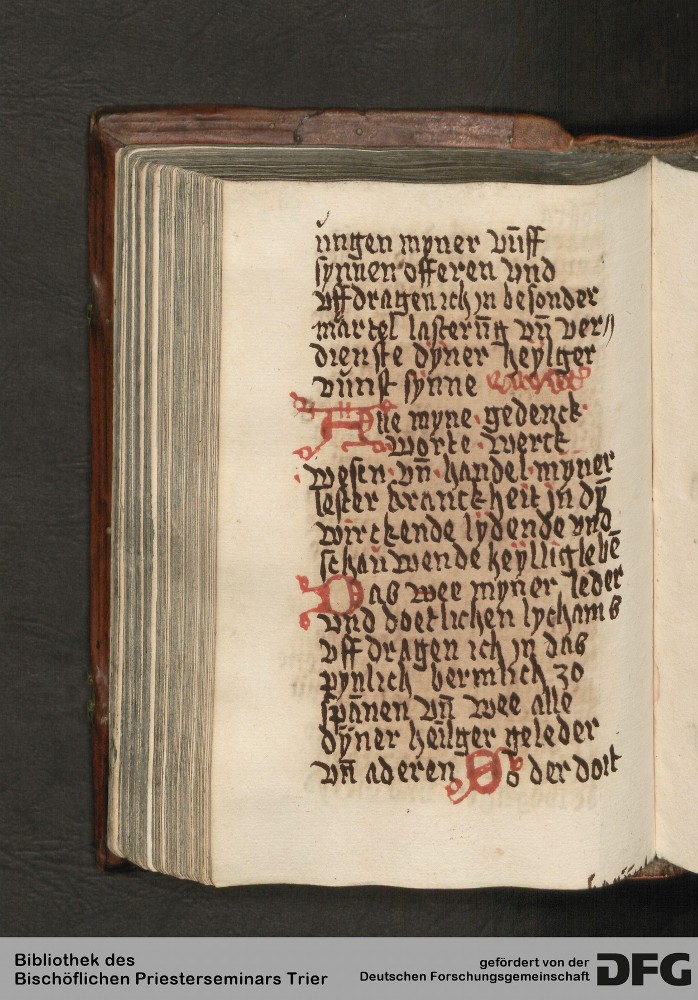 ungen myner vu̅ff
synnen offeren vnd
vff dragen ich jn besonder
martel lasteru̅g vn̅ ver⸗
dienste dyner heylger
vunff synne
Alle myne gedenck
worte · werck
wesen · vn̅ · handel · myner
lester kranckheit jn dy̅
wirckende lydende vnd
schauwende heyllig lebe̅
Das wee myner leder
vnd doetlichen lychams
vff dragen ich jn das
pynlich bermlich zo
spa̅nen vn̅ wee alle
dyner heilger geleder
vn̅ aderen So der doit
Bibliothek des
Bischöflichen Priesterseminars Trier
gefördert von der
Deutschen Forschungsgemeinschaft
DFG